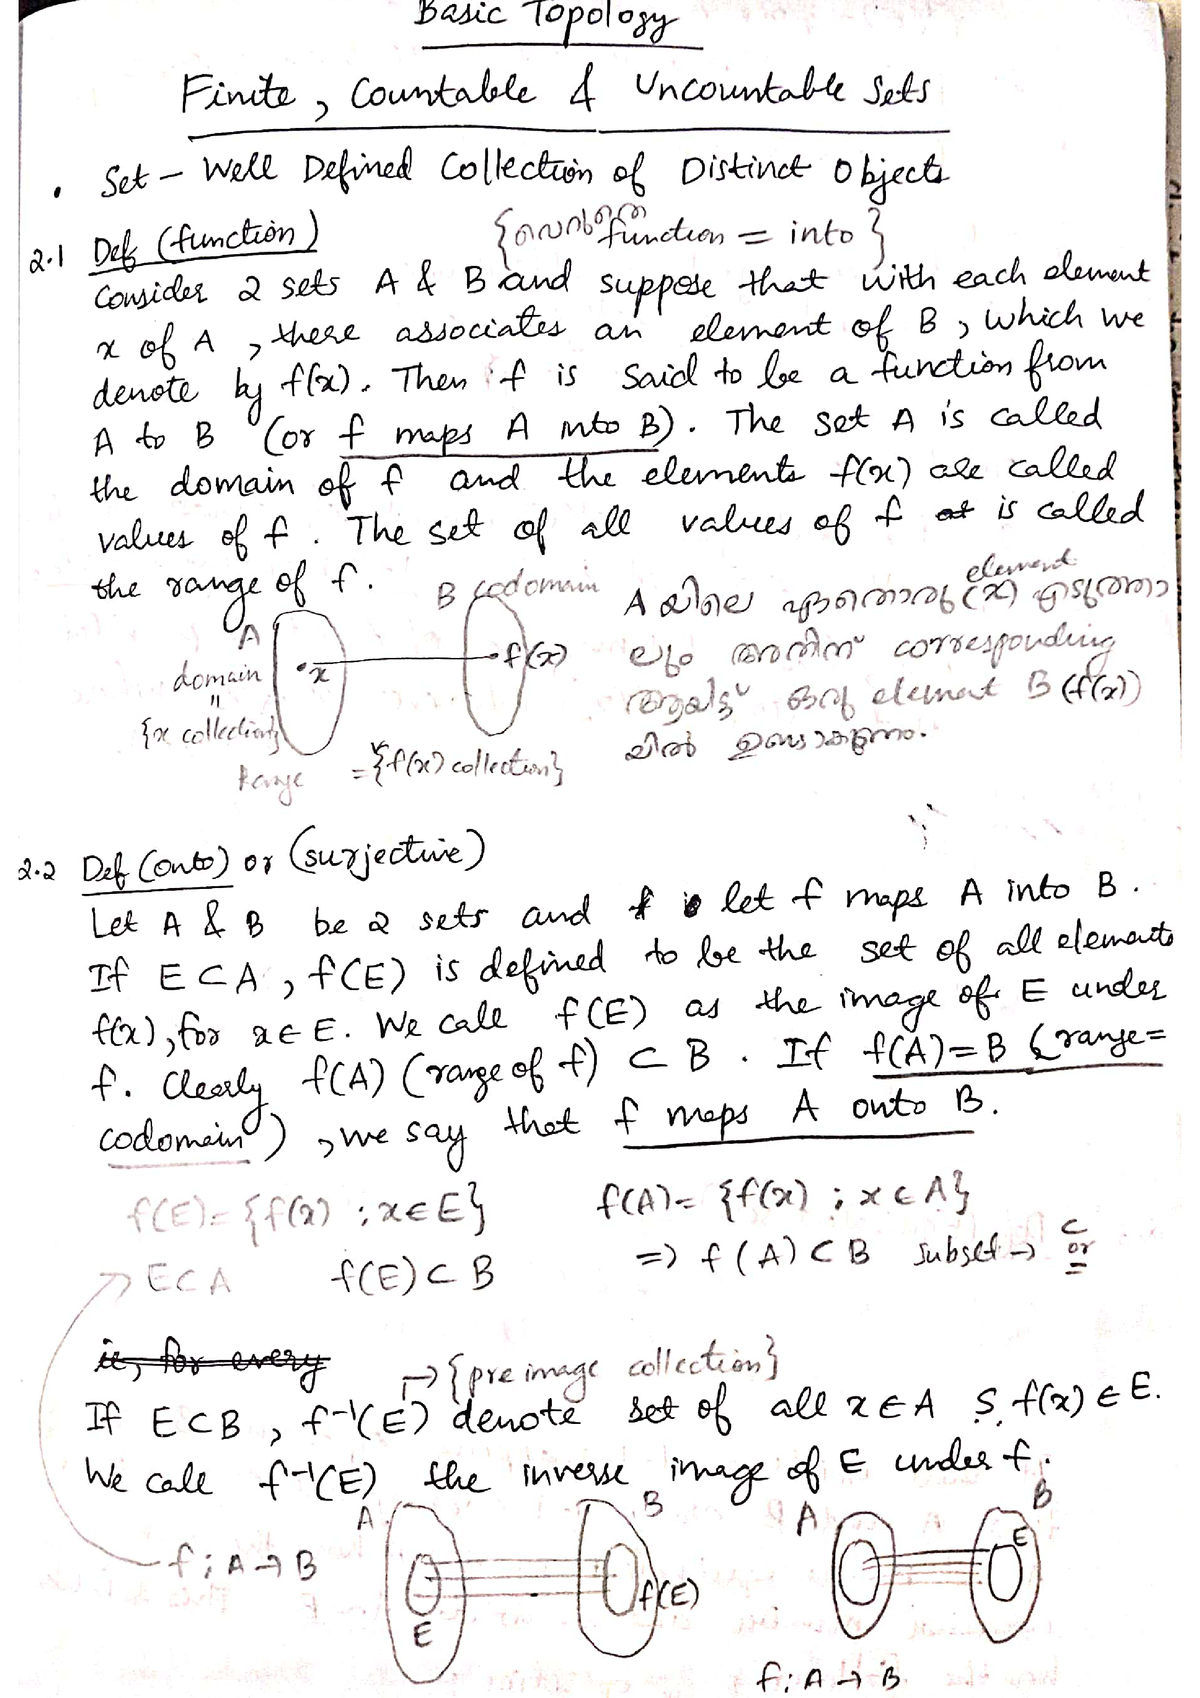 Basic Topology
Finite, Countable & Uncountable Sets
• Set - Well Defined Collection of Distinct Objects
2.1 Def (function) {വെറുതെ function = into}
Consider 2 sets A & B and suppose that with each element
x of A, there associates an element of B, which we
denote by f(x). Then f is said to be a function from
A to B (or f maps A into B). The set A is called
the domain of f and the elements f(x) are called
values of f. The set of all values of f is called
the range of f.
B codomain
A യിലെ ഏതൊരു element (x) എടുത്താ
ലും അതിന് corresponding
ആയിട്ട് ഒരു element B (f(x))
യിൽ ഉണ്ടാകുന്നു.
A
domain
"
{x collection}
•x
•f(x)
Range = {f(x) collection}
2.2 Def (onto) or (surjective)
Let A & B be 2 sets and let f maps A into B.
If E ⊂ A, f(E) is defined to be the set of all elements
f(x), for x ∈ E. We call f(E) as the image of E under
f. Clearly f(A) (range of f) ⊂ B. If f(A) = B (range =
codomain), we say that f maps A onto B.
f(E) = {f(x) ; x ∈ E} f(A) = {f(x) ; x ∈ A}
→ E ⊂ A f(E) ⊂ B => f(A) ⊂ B subset → ⊂ or =
ie, for every
→ {pre image collection}
If E ⊂ B, f⁻¹(E) denote set of all x ∈ A S. f(x) ∈ E.
We call f⁻¹(E) the inverse image of E under f.
A B A B
f: A → B
E f(E) E
f: A → B